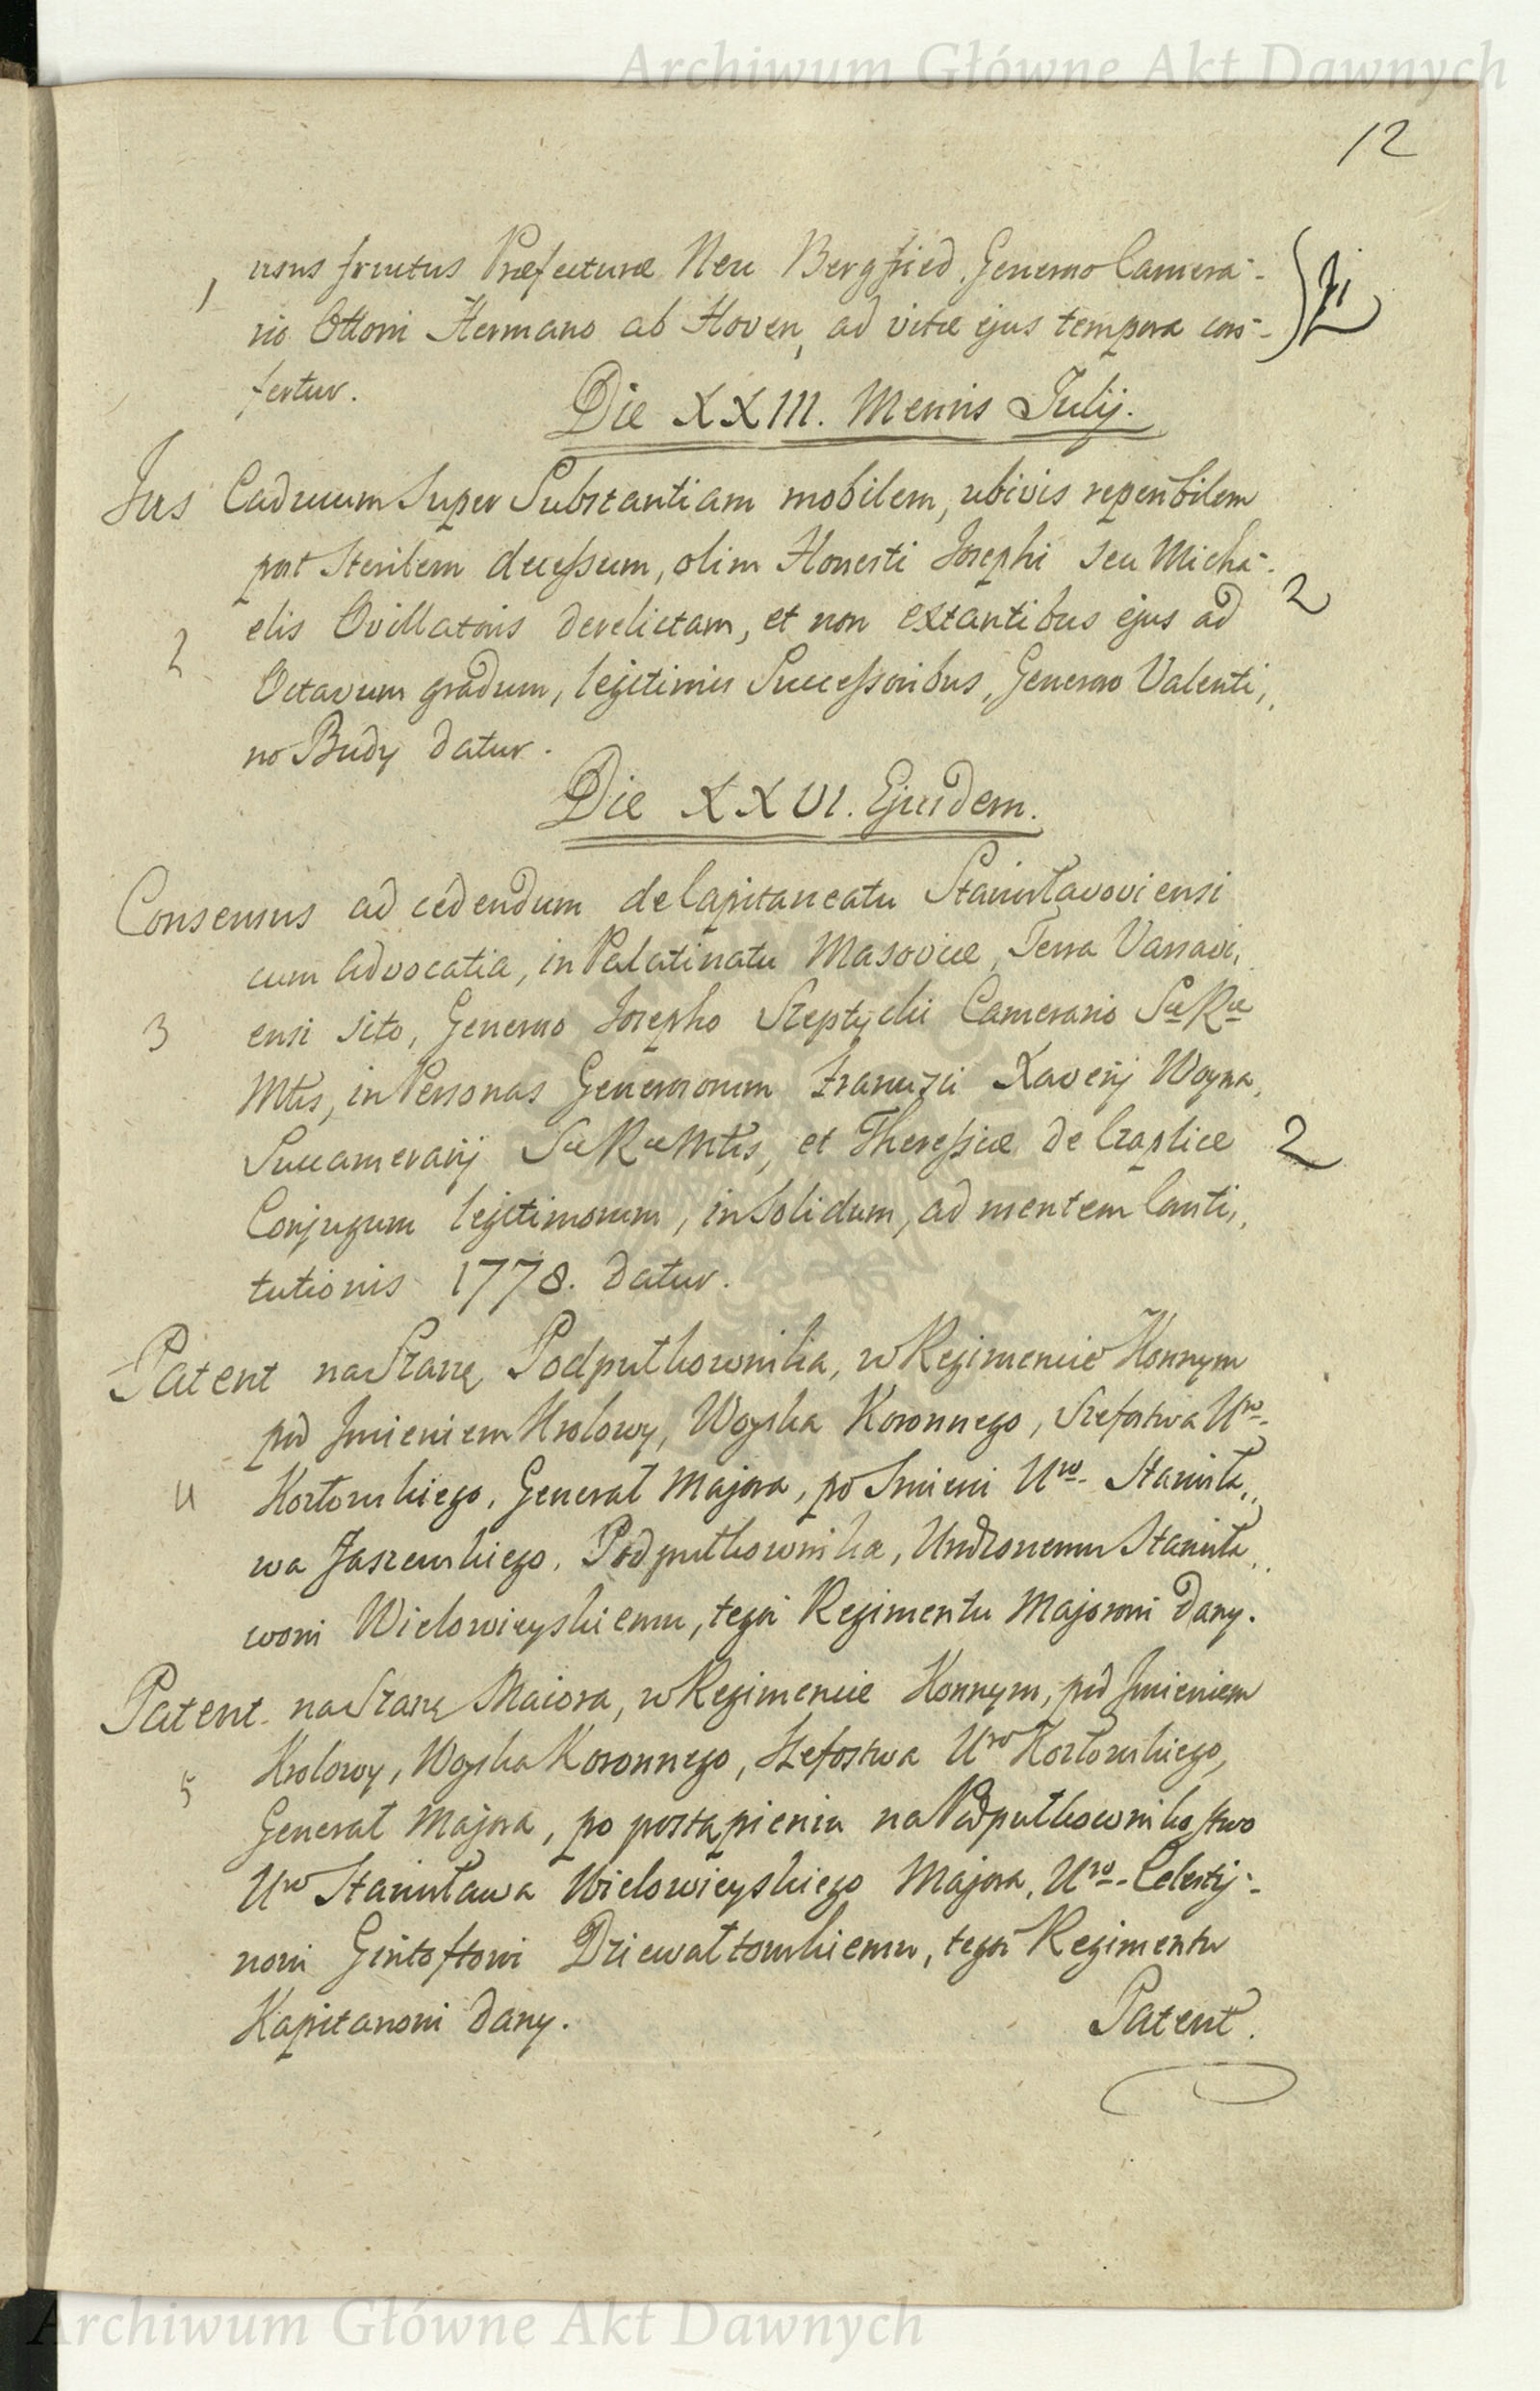 Archiwum Główne Akt Dawnych
12
1 usus fructus Præfecturæ Neu Bergfried, Generoso Camera-
rio Ottoni Hermano ab Hoven, ad vitæ ejus tempora con-
fertur.
Die XXIII. Mensis Julij.
Jus Caducum Super Substantiam mobilem, ubivis reperibilem
post Sterilem decessum, olim Honesti Josephi seu Micha-
elis Ovillatoris derelictam, et non extantibus ejus ad 2
2 Octavum gradum, legitimis Successoribus, Generoso Valenti,
no Budy datur.
Die XXVI. Ejusdem.
Consensus ad cedendum de Capitaneatu Stanisławoviensi
cum Advocatia, in Palatinatu Masoviæ, Terra Varsavi,
3 ensi sito, Generoso Josepho Szeptycki Camerario Sæ Ræ
Mtis, in Personas Generosorum Francisci Xaverij Woyna,
Succamerarij Sæ Ræ Mtis, et Theressiæ de Czaplice 2
Conjugum legitimorum, in Solidum, ad mentem Consti,
tutionis 1778. datur.
Patent na Szarżę Podpułkownika, w Regimencie Konnym
pod Jmieniem Krolowy, Woyska Koronnego, Szefostwa Uro
4 Kozłowskiego, Generał Majora, po Smierci Uro Stanisła,,
wa Jaszewskiego, Podpułkownika, Urodzonemu Stanisła,,
wowi Wielowieyskiemu, tegoż Regimentu Majorowi dany.
Patent na Szarżę Maiora, w Regimencie Konnym, pod Jmieniem
Krolowy, Woyska Koronnego, Szefostwa Uro Kozłowskiego,
5 Generał Majora, po postąpieniu na Podpułkownikostwo
Uro Stanisława Wielowieyskiego Majora, Uro Celesty-
nowi Gintoftowi Dziewałtowskiemu, tegoż Regimentu
Kapitanowi dany.
Patent.
Archiwum Główne Akt Dawnych